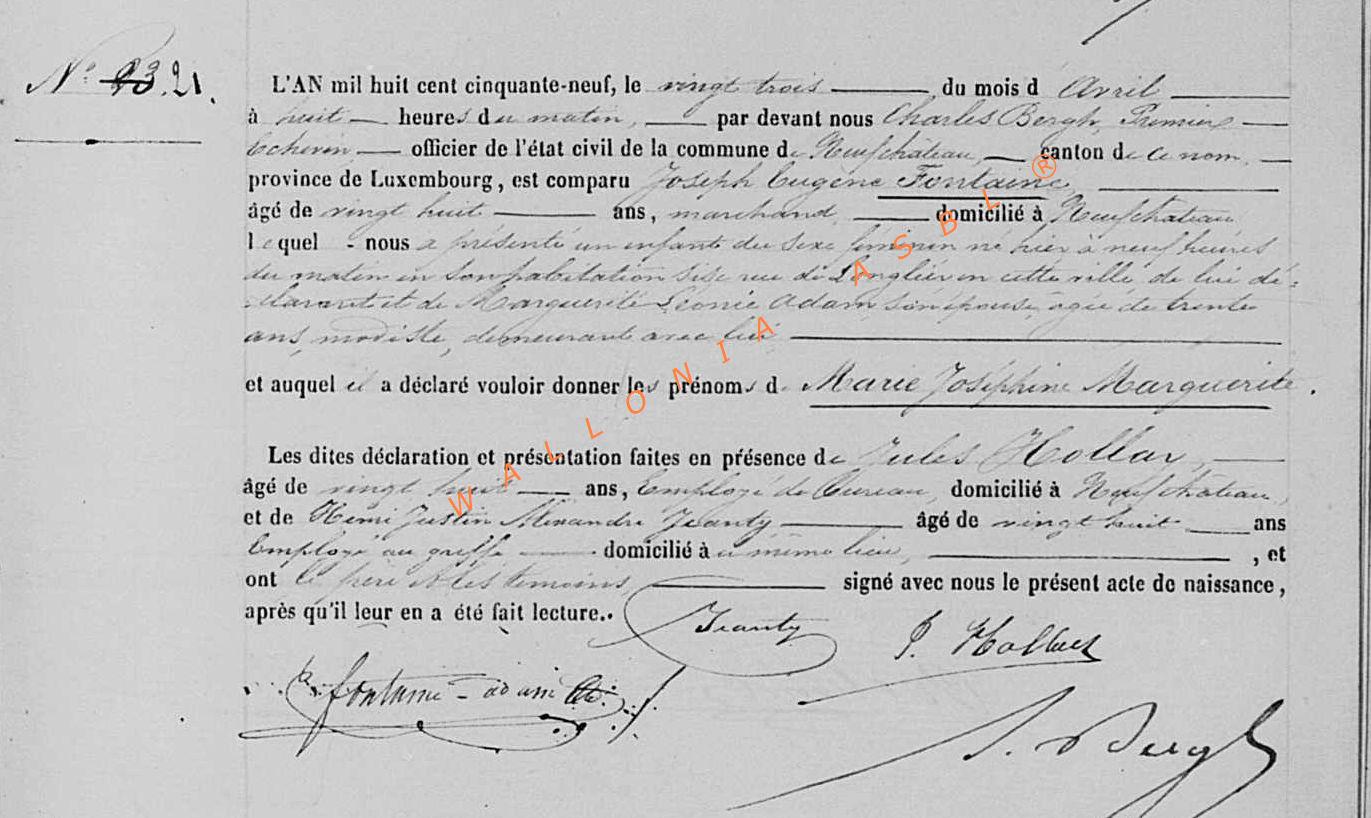 N° 23. 21.
L'AN mil huit cent cinquante-neuf, le vingt trois du mois d'Avril
à huit heures du matin, par devant nous Charles Bergh, Premier
Echevin, officier de l'état civil de la commune de Neufchateau, canton de ce nom,
province de Luxembourg, est comparu Joseph Eugène Fontaine
âgé de vingt huit ans, marchand, domicilié à Neufchateau
lequel nous a présenté un enfant du sexe féminin né hier à neuf heures
du matin en son habitation sise rue de Longlier en cette ville, de lui dé-
clarant et de Marguerite Léonie Adam son épouse, agée de trente
ans, modiste, demeurant avec lui
et auquel il a déclaré vouloir donner les prénoms de Marie Joséphine Marguerite.
Les dites déclaration et présentation faites en présence de Jules Hollar,
âgé de vingt huit ans, Employé de bureau, domicilié à Neufchateau,
et de Henri Justin Alexandre Jeanty âgé de vingt huit ans
Employé au greffe domicilié à même lieu, , et
ont le père et les témoins, signé avec nous le présent acte de naissance,
après qu'il leur en a été fait lecture..
Jeanty
J. Hollar
fontaine - adam
Bergh
WALLONIA ASBL ®